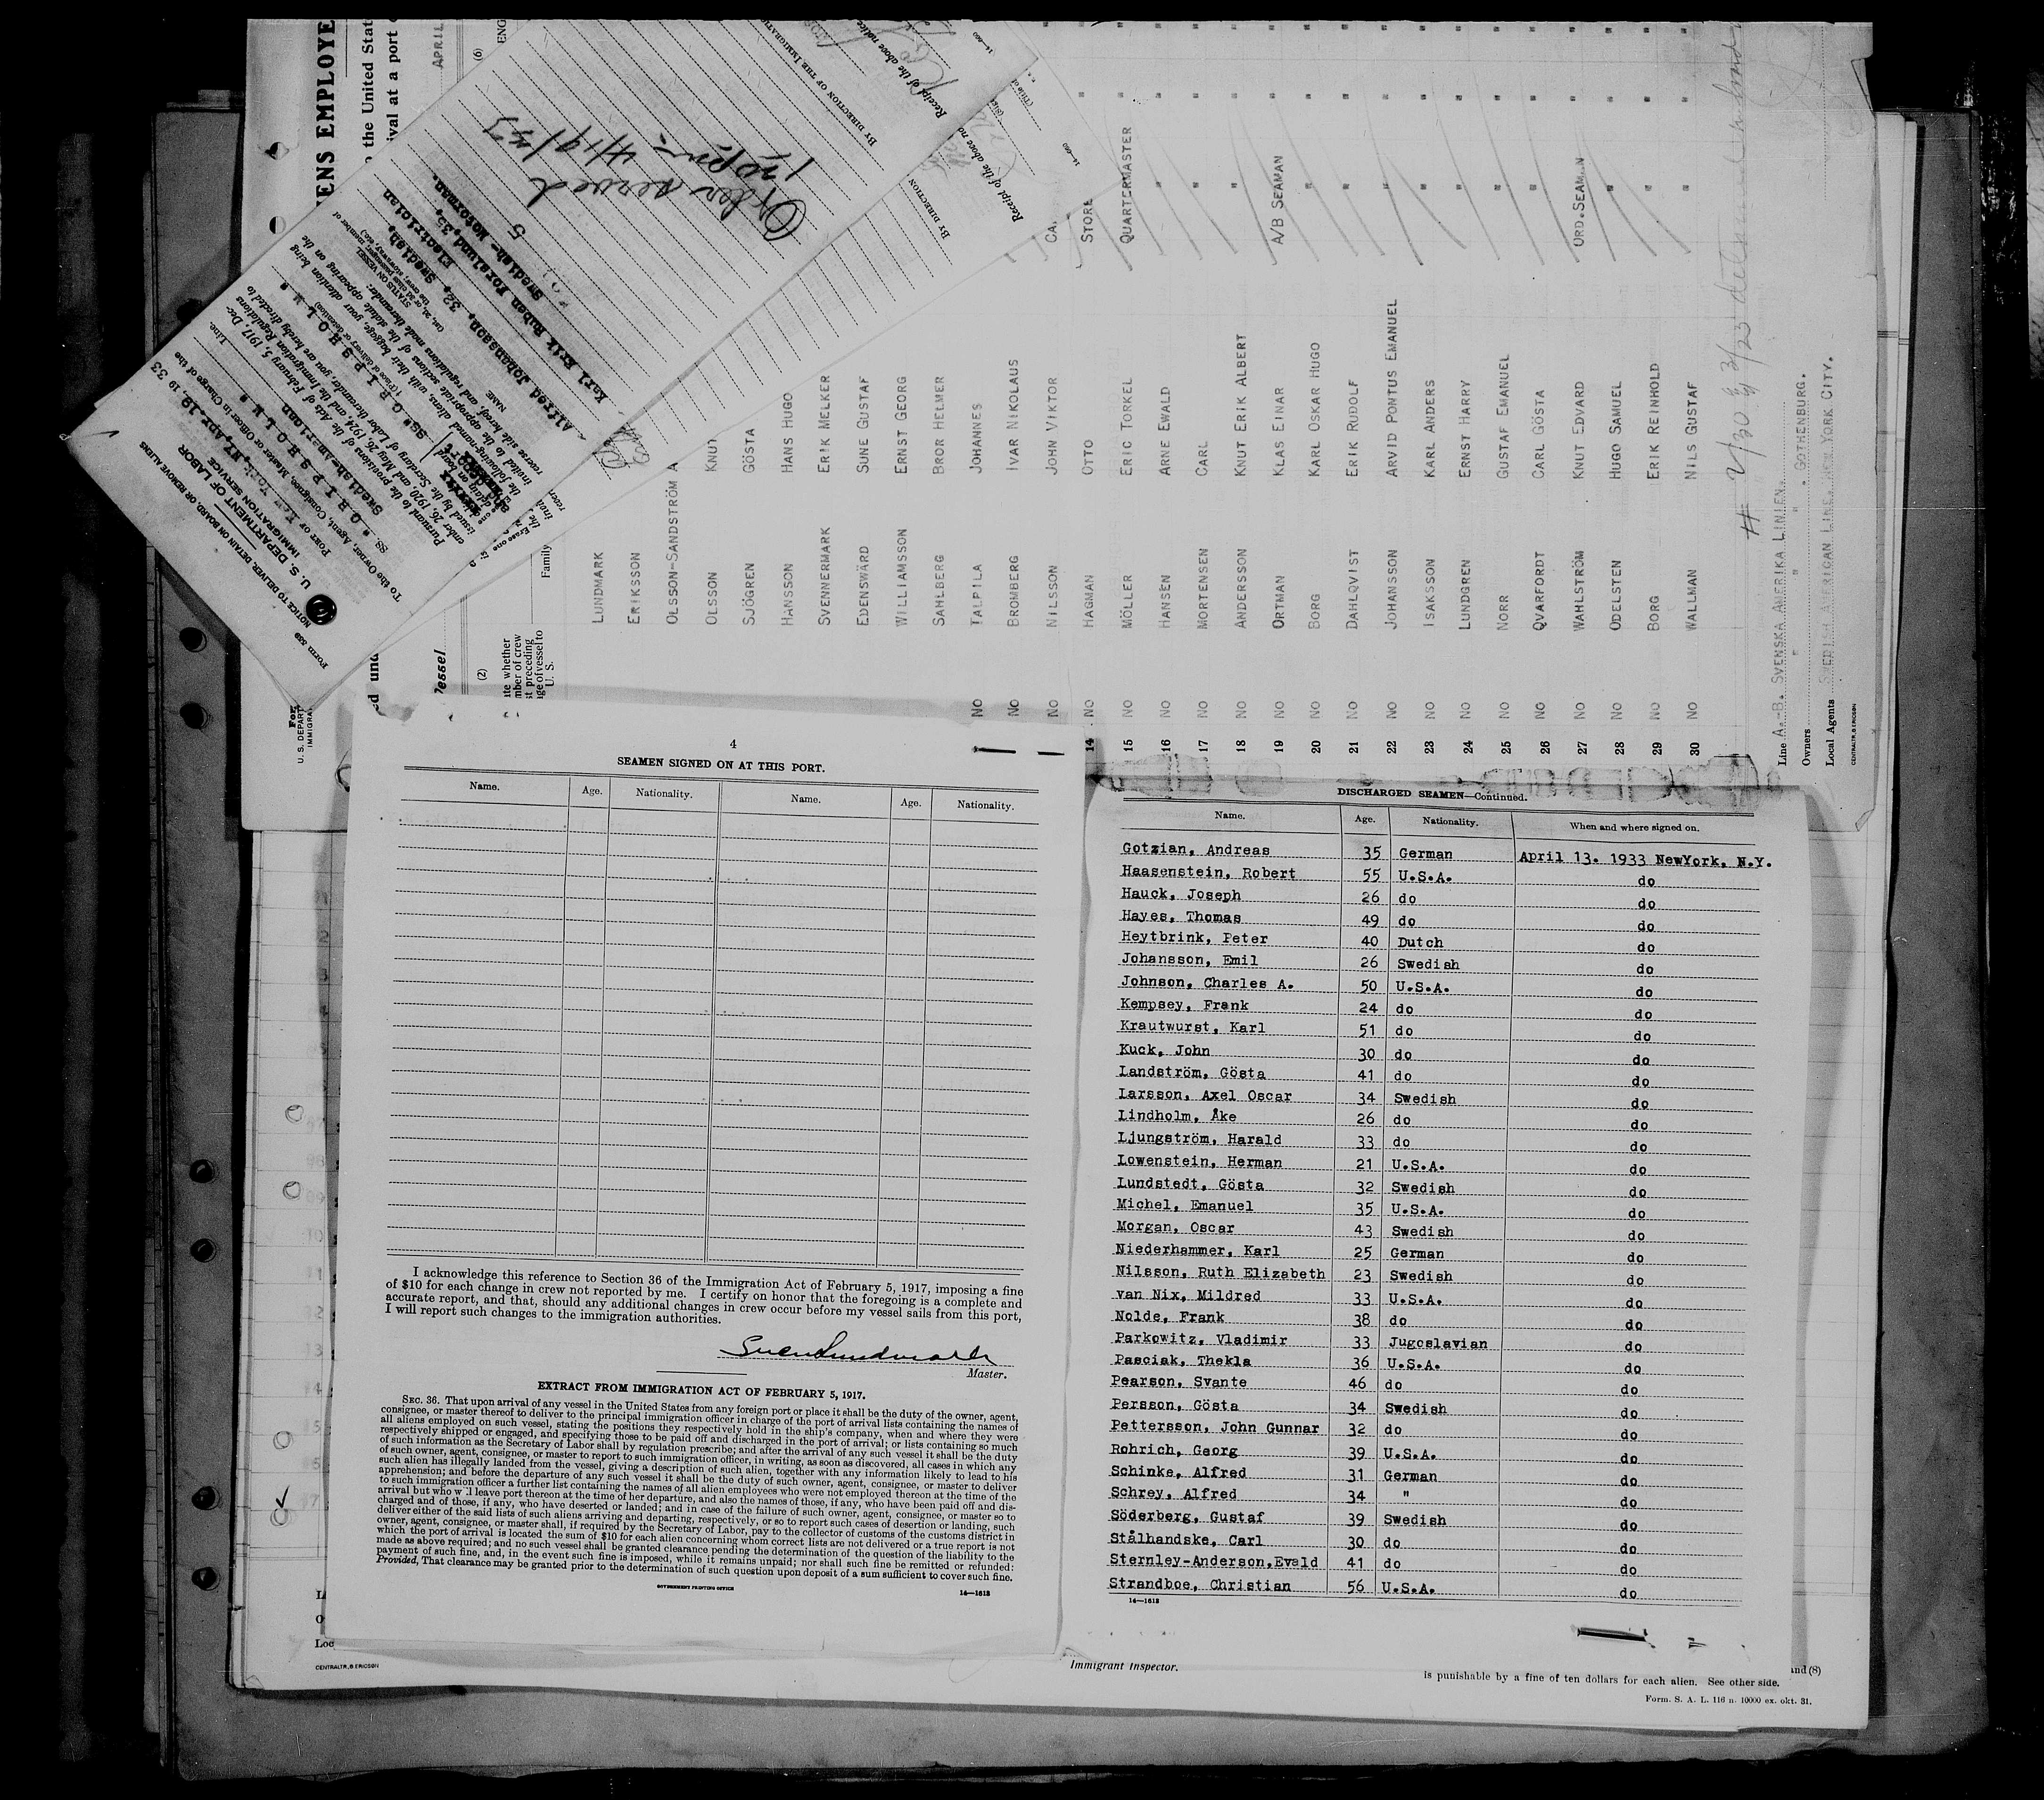 Form 539
NOTICE TO DELIVER, DETAIN ON BOARD, OR REMOVE ALIENS
U. S. DEPARTMENT OF LABOR
IMMIGRATION SERVICE
PORT OF New York, NY, Apr. 19, 19 33
To the Owner, Agent, Consignee, Master or Officer in Charge of the
SS. " G R I P S H O L M "
Swedish-American Line.
Pursuant to the provisions of the Acts of February 5, 1917, Dec-
ember 26, 1920 and May 26, 1924 and the Immigration Regulations
issued by the Secretary of Labor thereunder, you are hereby directed to
Alfred Johansson, 32, Swedish, Electrician
Karl Erik Ruben Forslund, 35,
Swedish- Motorman.
Order served
1 20 pm - 4/19/33
BY DIRECTION OF THE IMMIGRATION
BY DIRECTION
Receipt of the above notice
ENS EMPLOYE
o the United Stat
ival at a port
APRIL
(6)
(2)
Family
LUNDMARK
ERIKSSON
OLSSON-SANDSTRÖM A
OLSSON KNUT
SJÖGREN GÖSTA
HANSSON HANS HUGO
SVENNERMARK ERIK MELKER
EDENSWÄRD SUNE GUSTAF
WILLIAMSSON ERNST GEORG
SAHLBERG BROR HELMER
No TALPILA JOHANNES
No BROMBERG IVAR NIKOLAUS
No NILSSON JOHN VIKTOR CA
14 No HAGMAN OTTO STORE
15 No MÖLLER ERIC TORKEL QUARTERMASTER "
16 No HANSEN ARNE EWALD " "
17 No MORTENSEN CARL " "
18 No ANDERSSON KNUT ERIK ALBERT " "
19 No ORTMAN KLAS EINAR A/B SEAMAN "
20 No BORG KARL OSKAR HUGO " "
21 No DAHLQVIST ERIK RUDOLF " "
22 No JOHANSSON ARVID PONTUS EMANUEL " "
23 No ISAKSSON KARL ANDERS " "
24 No LUNDGREN ERNST HARRY " "
25 No NORR GUSTAF EMANUEL " "
26 No QVARFORDT CARL GÖSTA " "
27 No WAHLSTRÖM KNUT EDVARD ORD.SEAMAN "
28 No ODELSTEN HUGO SAMUEL " "
29 No BORG ERIK REINHOLD " "
30 No WALLMAN NILS GUSTAF " "
Line A.-B. SVENSKA AMERIKA LINIEN.
Owners " " " GOTHENBURG.
Local Agents SWEDISH AMERICAN LINE. NEW YORK CITY.
CENTRALTR, B ERICSON
4
SEAMEN SIGNED ON AT THIS PORT.
Name. Age. Nationality. Name. Age. Nationality.
I acknowledge this reference to Section 36 of the Immigration Act of February 5, 1917, imposing a fine
of $10 for each change in crew not reported by me. I certify on honor that the foregoing is a complete and
accurate report, and that, should any additional changes in crew occur before my vessel sails from this port,
I will report such changes to the immigration authorities.
Sven Lundmark
Master.
EXTRACT FROM IMMIGRATION ACT OF FEBRUARY 5, 1917.
SEC. 36. That upon arrival of any vessel in the United States from any foreign port or place it shall be the duty of the owner, agent,
consignee, or master thereof to deliver to the principal immigration officer in charge of the port of arrival lists containing the names of
all aliens employed on such vessel, stating the positions they respectively hold in the ship's company, when and where they were
respectively shipped or engaged, and specifying those to be paid off and discharged in the port of arrival; or lists containing so much
of such information as the Secretary of Labor shall by regulation prescribe; and after the arrival of any such vessel it shall be the duty
of such owner, agent, consignee, or master to report to such immigration officer, in writing, as soon as discovered, all cases in which any
such alien has illegally landed from the vessel, giving a description of such alien, together with any information likely to lead to his
apprehension; and before the departure of any such vessel it shall be the duty of such owner, agent, consignee, or master to deliver
to such immigration officer a further list containing the names of all alien employees who were not employed thereon at the time of the
arrival but who will leave port thereon at the time of her departure, and also the names of those, if any, who have been paid off and dis-
charged and of those, if any, who have deserted or landed; and in case of the failure of such owner, agent, consignee, or master so to
deliver either of the said lists of such aliens arriving and departing, respectively, or so to report such cases of desertion or landing, such
owner, agent, consignee, or master, shall, if required by the Secretary of Labor, pay to the collector of customs of the customs district in
which the port of arrival is located the sum of $10 for each alien concerning whom correct lists are not delivered or a true report is not
made as above required; and no such vessel shall be granted clearance pending the determination of the question of the liability to the
payment of such fine, and, in the event such fine is imposed, while it remains unpaid; nor shall such fine be remitted or refunded:
Provided, That clearance may be granted prior to the determination of such question upon deposit of a sum sufficient to cover such fine.
GOVERNMENT PRINTING OFFICE
14—1613
DISCHARGED SEAMEN—Continued.
Name. Age. Nationality. When and where signed on.
Gotzian, Andreas 35 German April 13. 1933 NewYork, N.Y.
Haasenstein, Robert 55 U.S.A. do
Hauck, Joseph 26 do do
Hayes, Thomas 49 do do
Heytbrink, Peter 40 Dutch do
Johansson, Emil 26 Swedish do
Johnson, Charles A. 50 U.S.A. do
Kempsey, Frank 24 do do
Krautwurst, Karl 51 do do
Kuck, John 30 do do
Landström, Gösta 41 do do
Larsson, Axel Oscar 34 Swedish do
Lindholm, Åke 26 do do
Ljungström, Harald 33 do do
Lowenstein, Herman 21 U.S.A. do
Lundstedt, Gösta 32 Swedish do
Michel, Emanuel 35 U.S.A. do
Morgan, Oscar 43 Swedish do
Niederhammer, Karl 25 German do
Nilsson, Ruth Elizabeth 23 Swedish do
van Nix, Mildred 33 U.S.A. do
Nolde, Frank 38 do do
Parkowitz, Vladimir 33 Jugoslavian do
Pasciak, Thekla 36 U.S.A. do
Pearson, Svante 46 do do
Persson, Gösta 34 Swedish do
Pettersson, John Gunnar 32 do do
Rohrich, Georg 39 U.S.A. do
Schinke, Alfred 31 German do
Schrey, Alfred 34 " do
Söderberg, Gustaf 39 Swedish do
Stålhandske, Carl 30 do do
Sternley-Anderson,Evald 41 do do
Strandboe, Christian 56 U.S.A. do
14—1613
CENTRALTR, B ERICSON
Immigrant Inspector.
and (8)
is punishable by a fine of ten dollars for each alien. See other side.
Form. S. A. L. 116 n. 10000 ex. okt. 31.